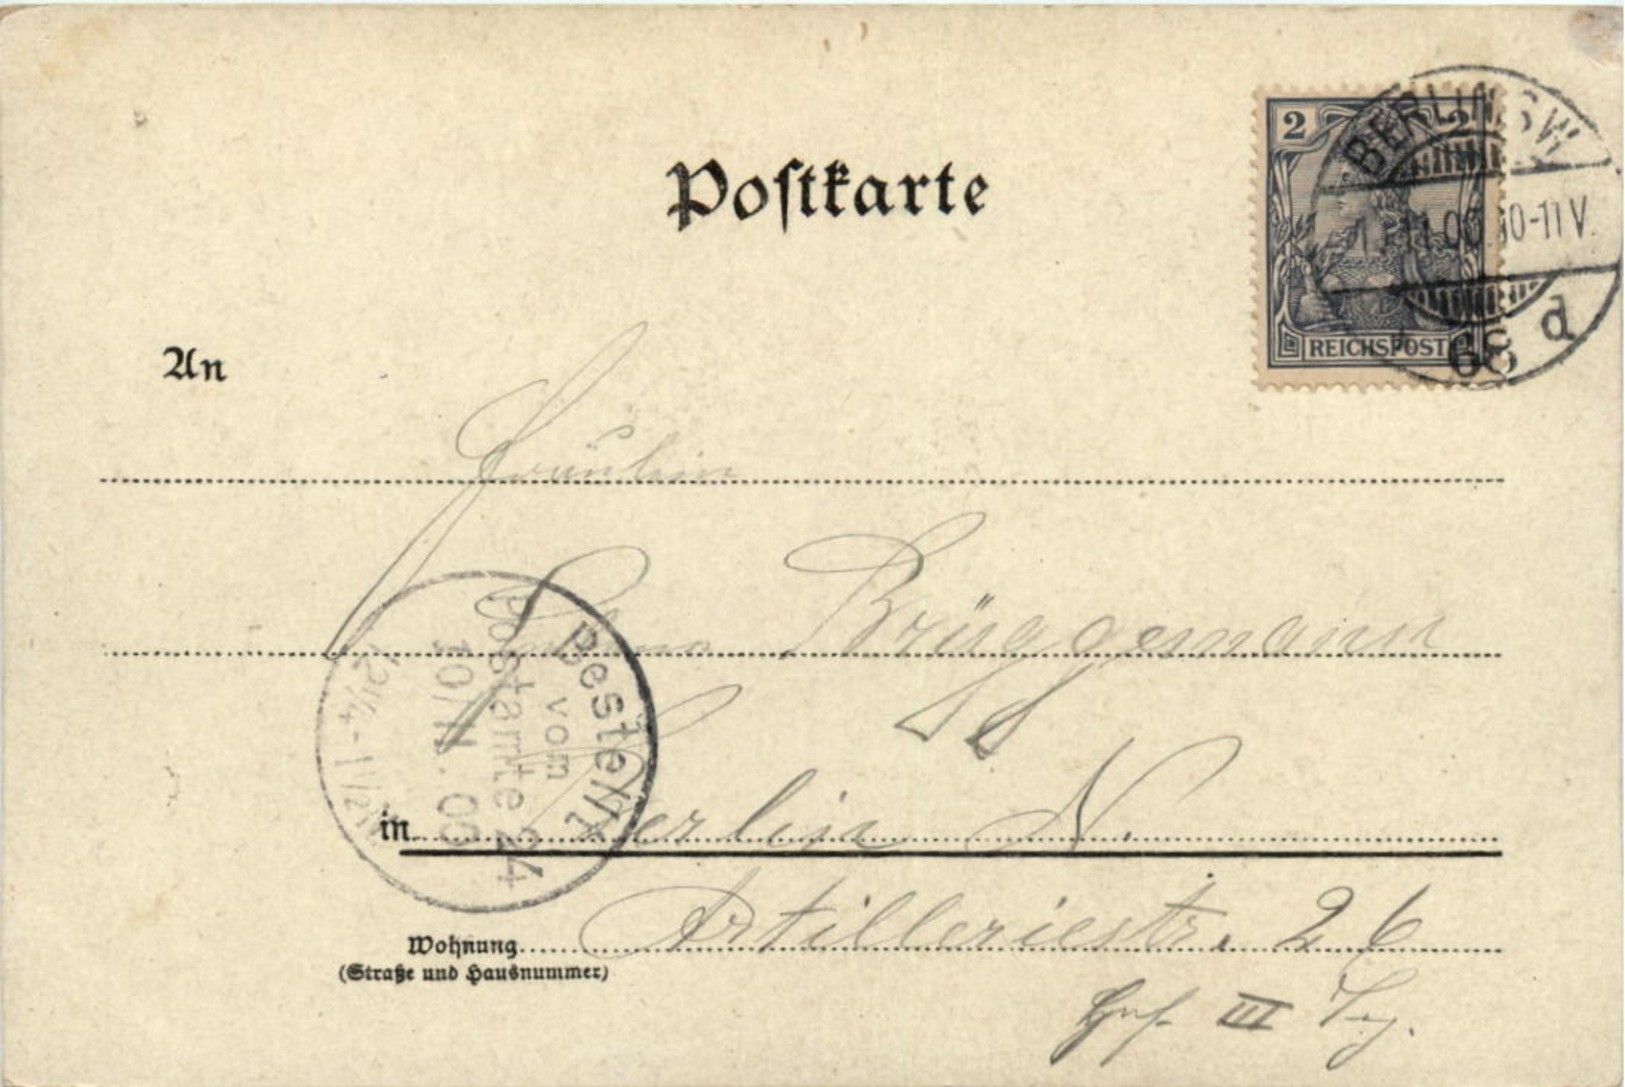 Postkarte
2 2
REICHSPOST
BERLIN SW
11.00. 10-11 V.
68 d
An
Fräulein
Brüggemann
in Berlin N.
Wohnung Artilleriestr. 26
(Straße und Hausnummer)
Hof III
Bestellt
vom
Postamte 24
10/11.00
12 1/4 - 1 1/2 N